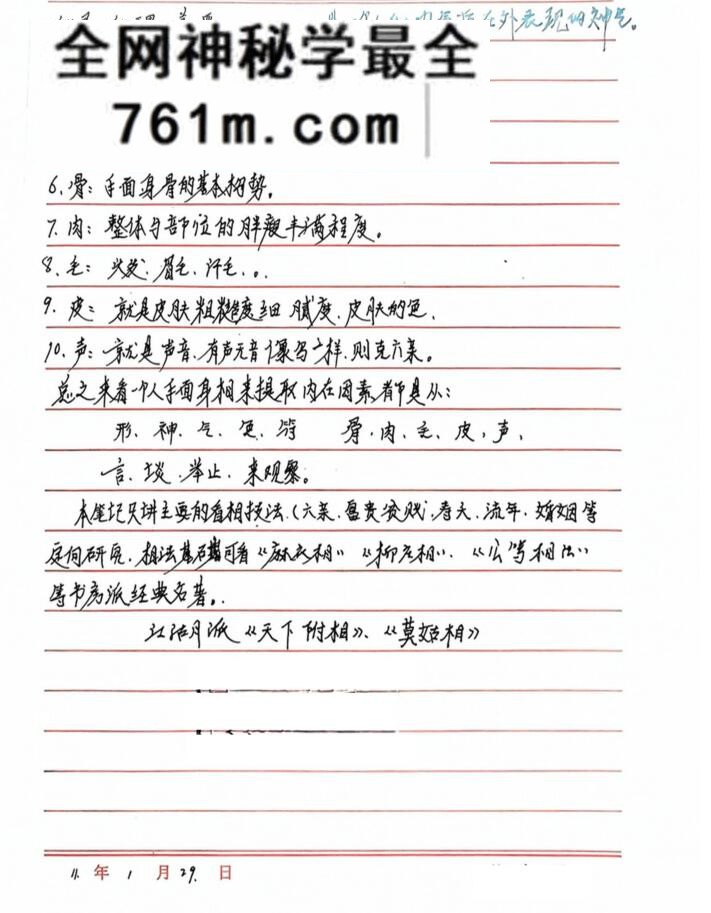 外表现的神气。
全网神秘学最全
761m.com
6、骨：手面身骨的基本构势。
7、肉：整体与部位的胖瘦丰满程度。
8、毛：头发、眉毛、汗毛、。。
9、皮：就是皮肤粗糙度细腻度、皮肤的色、
10、声：就是声音，有声无音像写字一样，则克六亲。
总之来看一个人手面身相来提取内在因素都是从：
形、神、气、色、骨、肉、毛、皮、声、
言、谈、举止、来观察。
本笔记只讲主要的看相技法、（六亲、富贵贫贱、寿夭、流年、婚姻等
定向研究，相法基础可看《麻衣相》《柳庄相》、《公笃相法》
等书房派经典名著。
江湖月派《天下附相》、《莫姬相》
11年1月29日